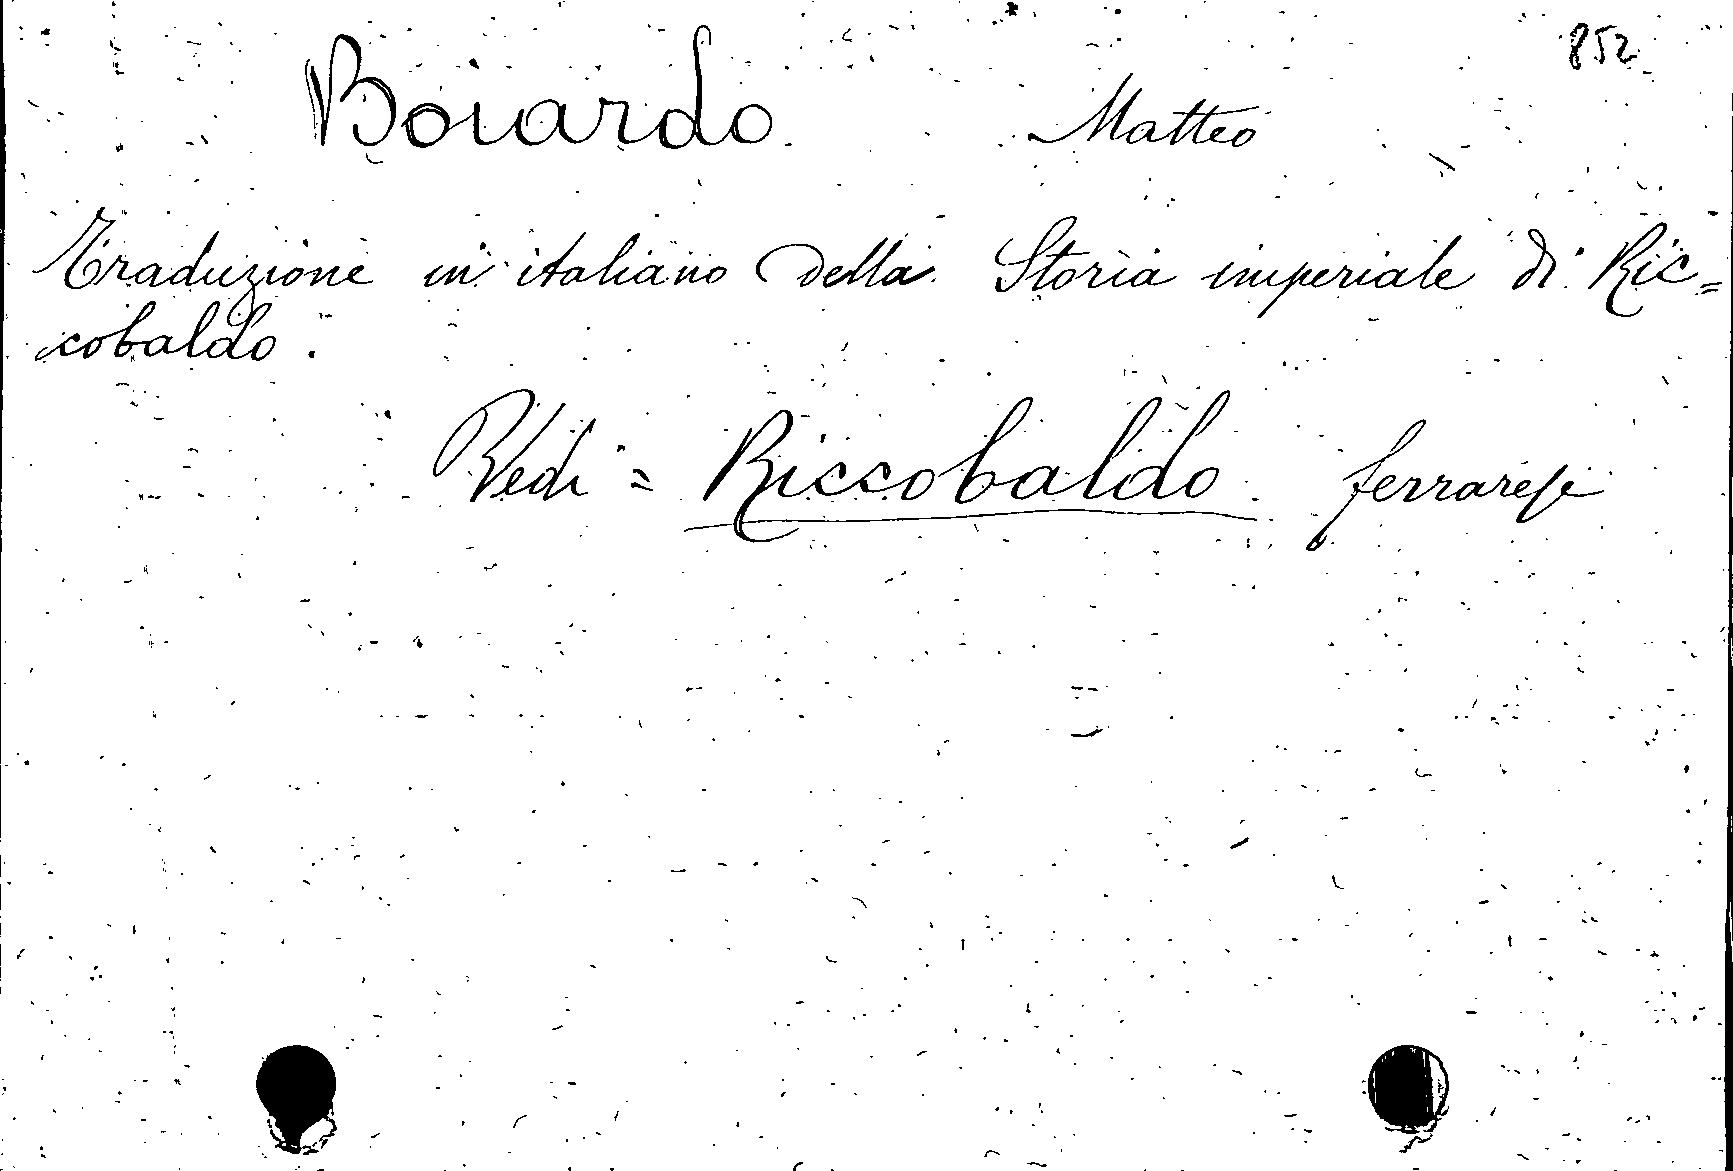 852
Boiardo Matteo
Traduzione in italiano della Storia imperiale di Ric=
cobaldo.
Vedi = Riccobaldo ferrarese